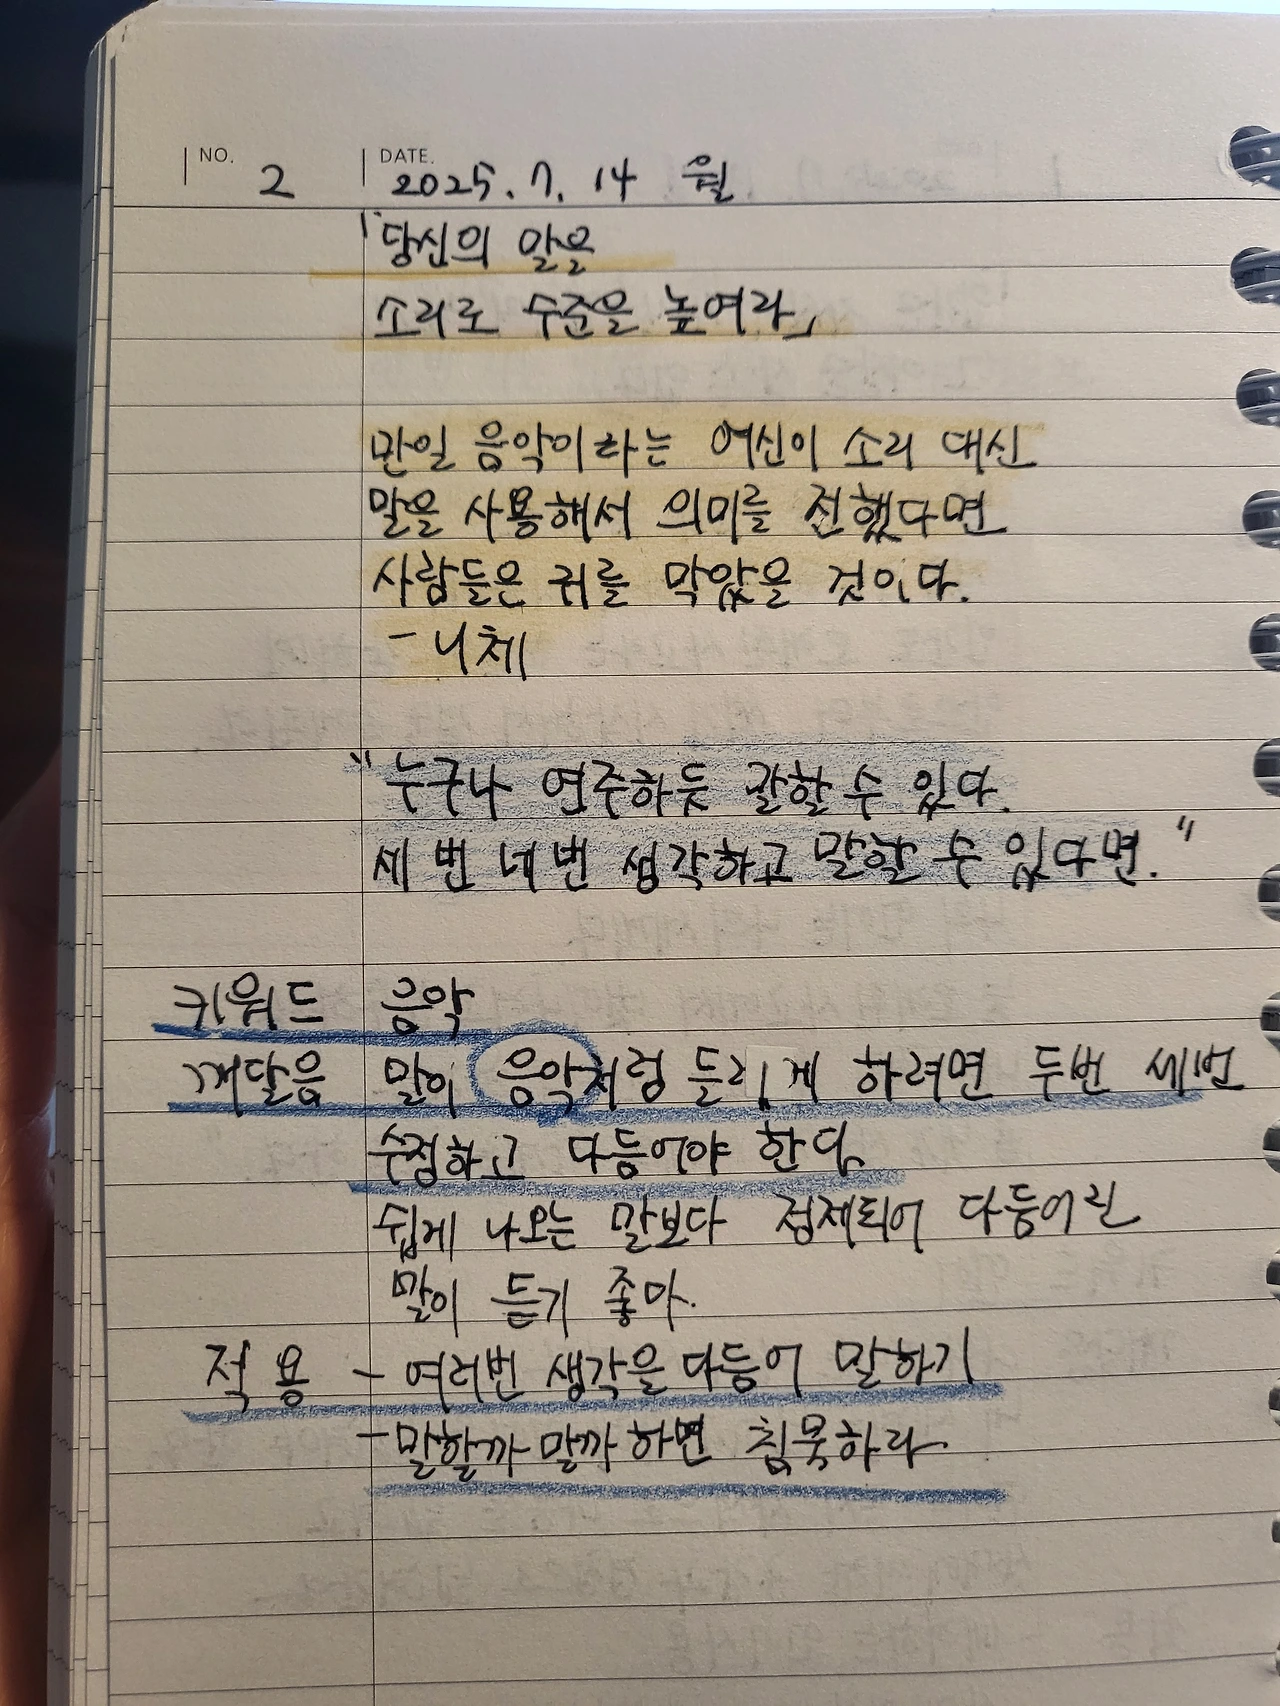 NO. 2 DATE. 2025. 7. 14 월
「당신의 말은
소리로 수준을 높여라」
만일 음악이라는 여신이 소리 대신
말을 사용해서 의미를 전했다면
사람들은 귀를 막았을 것이다.
- 니체
"누구나 연주하듯 말할 수 있다.
세 번 네 번 생각하고 말할 수 있다면."
키워드 음악
깨달음 말이 음악처럼 들리게 하려면 두번 세번
수정하고 다듬어야 한다.
쉽게 나오는 말보다 정제되어 다듬어린
말이 듣기 좋아.
적용 - 여러번 생각을 다듬어 말하기
- 말할까 말까 하면 침묵하라